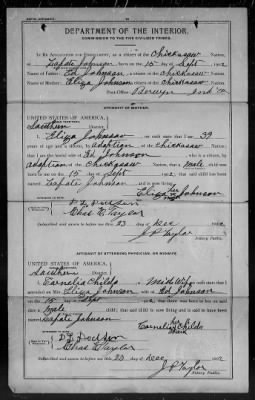 DEPARTMENT OF THE INTERIOR.
COMMISSION TO THE FIVE CIVILIZED TRIBES.
IN RE APPLICATION FOR ENROLLMENT, as a citizen of the Chickasaw Nation,
of Lafate Johnson, born on the 15 day of Sept, 1902
Name of Father: Ed Johnson a citizen of the Chickasaw Nation.
Name of Mother: Eliza Johnson a citizen of the Chickasaw Nation.
Post-Office Berwyn Ind Ter
AFFIDAVIT OF MOTHER.
UNITED STATES OF AMERICA,
INDIAN TERRITORY,
Southern District.
I, Eliza Johnson, on oath state that I am 39
years of age and a citizen, by adoption, of the Chickasaw
Nation; that I am the lawful wife of Ed Johnson, who is a citizen, by
adoption of the Chickasaw Nation; that a male child was
born to me on 15 day of Sept, 1902, that said child has been
named Lafate Johnson, and is now living.
Eliza Johnson
mark
Chas E Taylor
Subscribed and sworn to before me this 23 day of Dec, 1902
J P Taylor
Notary Public.
AFFIDAVIT OF ATTENDING PHYSICIAN, OR MIDWIFE.
UNITED STATES OF AMERICA,
INDIAN TERRITORY,
Southern District.
I, Cornelia Childs, a Midwife, on oath state that I
attended on Mrs. Eliza Johnson, wife of Ed Johnson
on the 15 day of Sept, 1902; that there was born to her on said
date a male child; that said child is now living and is said to have been
named Lafate Johnson
Cornelia her Childs
mark
Chas E Taylor
Subscribed and sworn to before me this 23 day of Dec, 1902
J P Taylor
Notary Public.